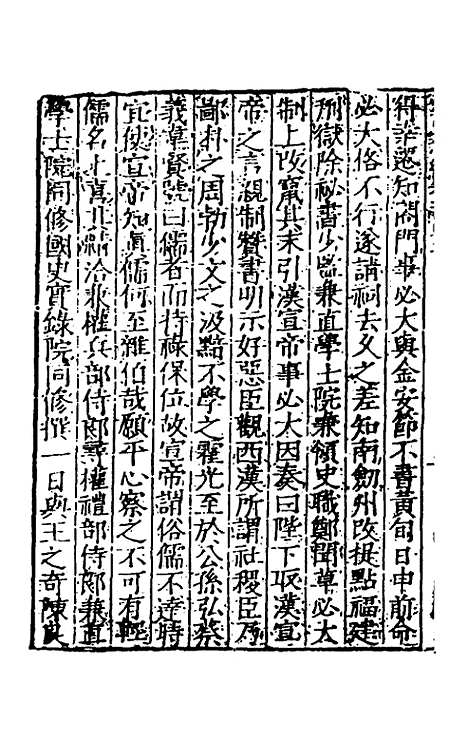 知閤門事必大與金安節不書黃旬日申前命
必大格不行遂請祠去久之差知南劍州改提點福建
刑獄除祕書少監兼直學士院兼領史職鄭聞草必大
制上改竄其末引漢宣帝事必大因奏曰陛下取漢宣
帝之言親制贊書明示好惡臣觀西漢所謂社稷臣乃
鄙朴之周勃少文之汲黯不學之霍光至於公孫弘蔡
義韋賢號曰儒者而持祿保位故宣帝謂俗儒不達時
宜使宣帝知真儒何至雜伯哉願平心察之不可有輕
儒名上喜其精洽兼權兵部侍郎尋權禮部侍郎兼直
學士院同修國史實錄院同修撰一日與王之奇陳良